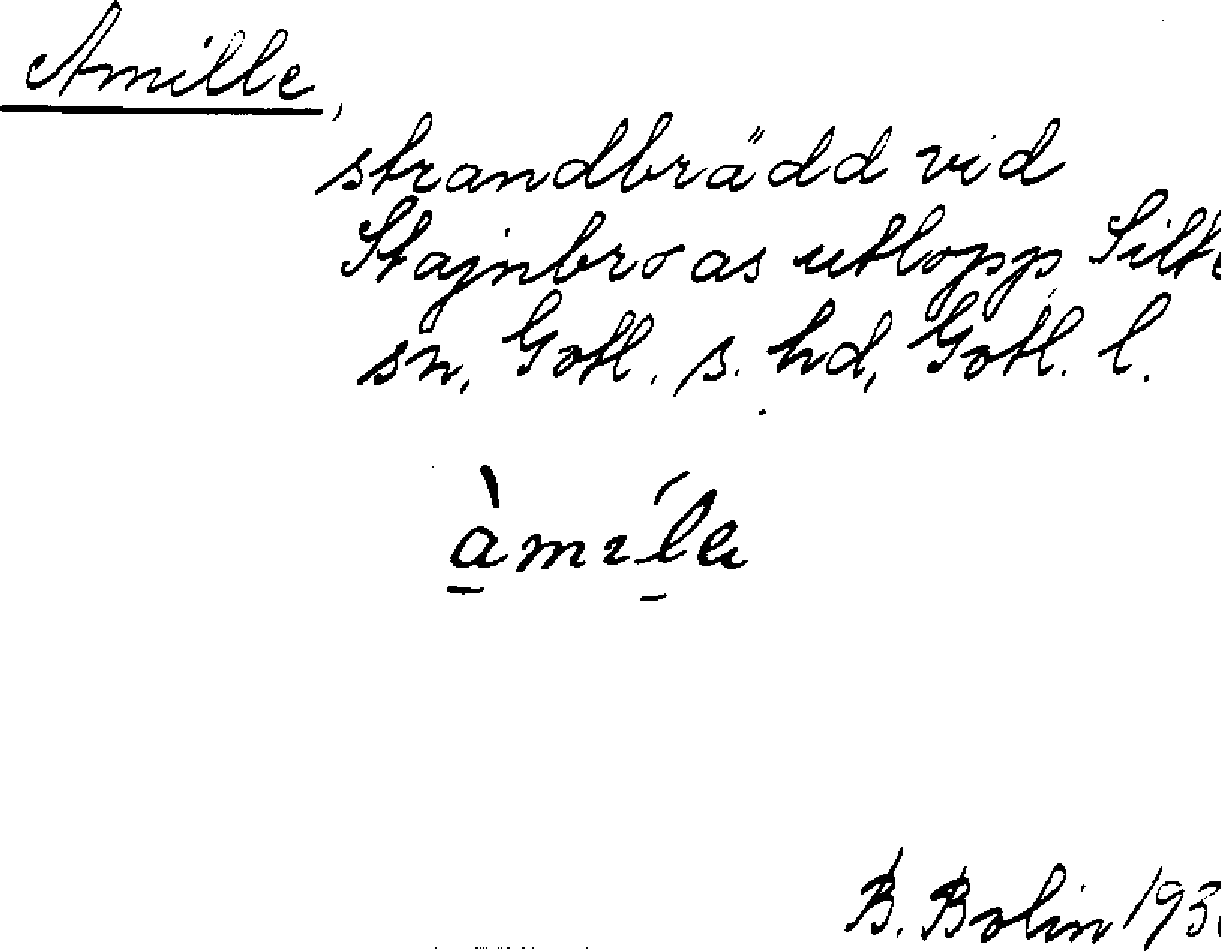 Amille,
strandbrädd vid
Stajnbro as utlopp,
sn, Gotl. s. hd, Gotl. l.
B. Bolin